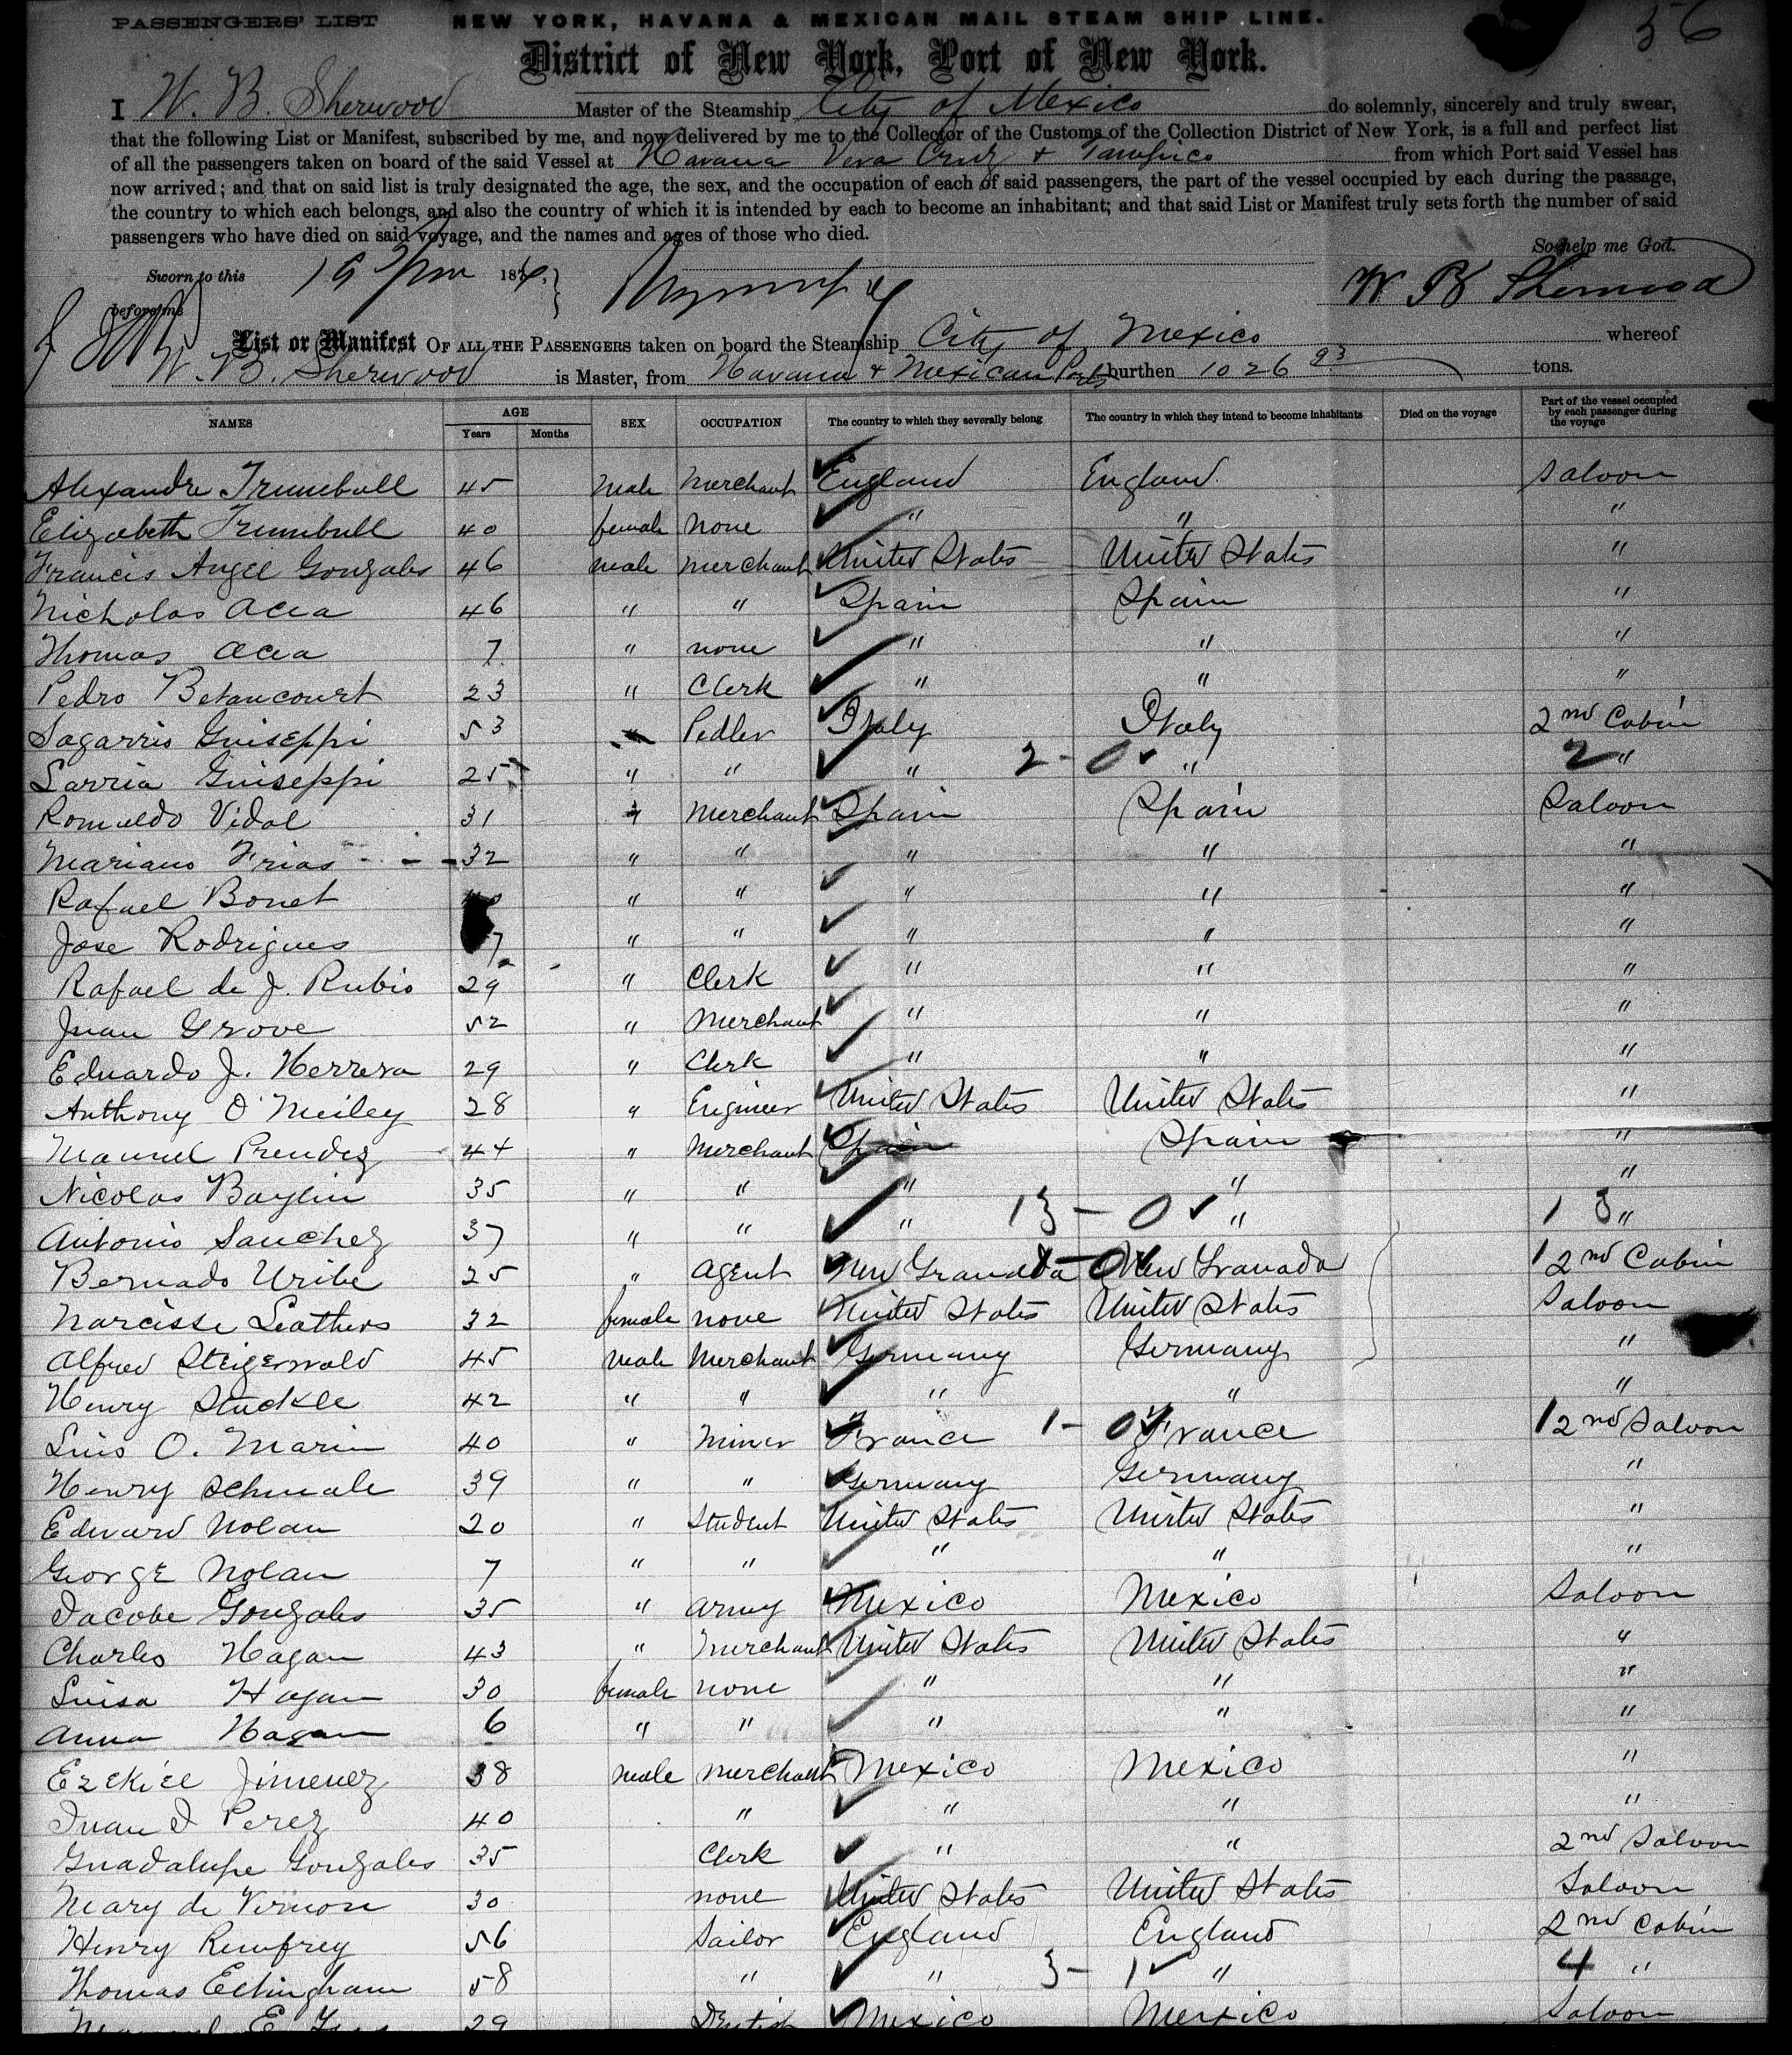 56
PASSENGERS' LIST NEW YORK, HAVANA & MEXICAN MAIL STEAM SHIP LINE.
District of New York, Port of New York.
I W. B. Sherwood Master of the Steamship City of Mexico do solemnly, sincerely and truly swear,
that the following List or Manifest, subscribed by me, and now delivered by me to the Collector of the Customs of the Collection District of New York, is a full and perfect list
of all the passengers taken on board of the said Vessel at Havana Vera Cruz & Tampico from which Port said Vessel has
now arrived; and that on said list is truly designated the age, the sex, and the occupation of each of said passengers, the part of the vessel occupied by each during the passage,
the country to which each belongs, and also the country of which it is intended by each to become an inhabitant; and that said List or Manifest truly sets forth the number of said
passengers who have died on said voyage, and the names and ages of those who died.
So help me God.
Sworn to this 19 187
before me
W B Sherwood
List or Manifest OF ALL THE PASSENGERS taken on board the Steamship City of Mexico whereof
W. B. Sherwood is Master, from Havana & Mexican Ports burthen 1026 93 tons.
NAMES AGE Years Months SEX OCCUPATION The country to which they severally belong The country in which they intend to become inhabitants Died on the voyage Part of the vessel occupied by each passenger during the voyage
Alexandre Trumbull 45 Male Merchant England England Saloon
Elizabeth Trumbull 40 female None " " "
Francis Angel Gonzales 46 male merchant United States United States "
Nicholas Acea 46 " " Spain Spain "
Thomas Acea 7 " none " " "
Pedro Betancourt 23 " Clerk " " "
Sagarris Guiseppi 53 " Pedler Italy Italy 2nd Cabin
Larria Guiseppi 25 " " " 2 - 0 " 2 "
Romuldo Vidal 31 " Merchant Spain Spain Saloon
Mariano Frias 32 " " " " "
Rafael Bonet " " " " "
Jose Rodrigues 7 " " " " "
Rafael de J. Rubio 29 " Clerk " " "
Juan Grove 52 " Merchant " " "
Eduardo J. Herrera 29 " Clerk " " "
Anthony O'Meiley 28 " Engineer United States United States "
Manuel Prendez 44 " Merchant Spain Spain "
Nicolas Baylin 35 " " " " "
Antonio Sanchez 37 " " " 13 - 0 " 13 "
Bernado Uribe 25 " Agent New Granada 1 - 0 New Granada 1 2nd Cabin
Narcisse Leathers 32 female none United States United States Saloon
Alfred Steigerwald 45 male Merchant Germany Germany "
Henry Stuckle 42 " " " " "
Luis O. Marin 40 " Miner France 1 - 0 France 1 2nd Saloon
Henry Schmale 39 " " Germany Germany "
Edward Nolan 20 " Student United States United States "
George Nolan 7 " " " " "
Jacobe Gonzales 35 " army Mexico Mexico Saloon
Charles Hagan 43 " Merchant United States United States "
Luisa Hagan 30 female none " " "
Anna Hagan 6 " " " " "
Ezekiel Jimenez 38 male merchant Mexico Mexico "
Juan J Perez 40 " " " "
Guadalupe Gonzales 35 Clerk " " 2nd Saloon
Mary de Vernon 30 none United States United States Saloon
Henry Rumfrey 56 Sailor England England 2nd Cabin
Thomas Eckingham 58 " " 3 - 1 " 4 "
E. 29 Dentist Mexico Mexico Saloon